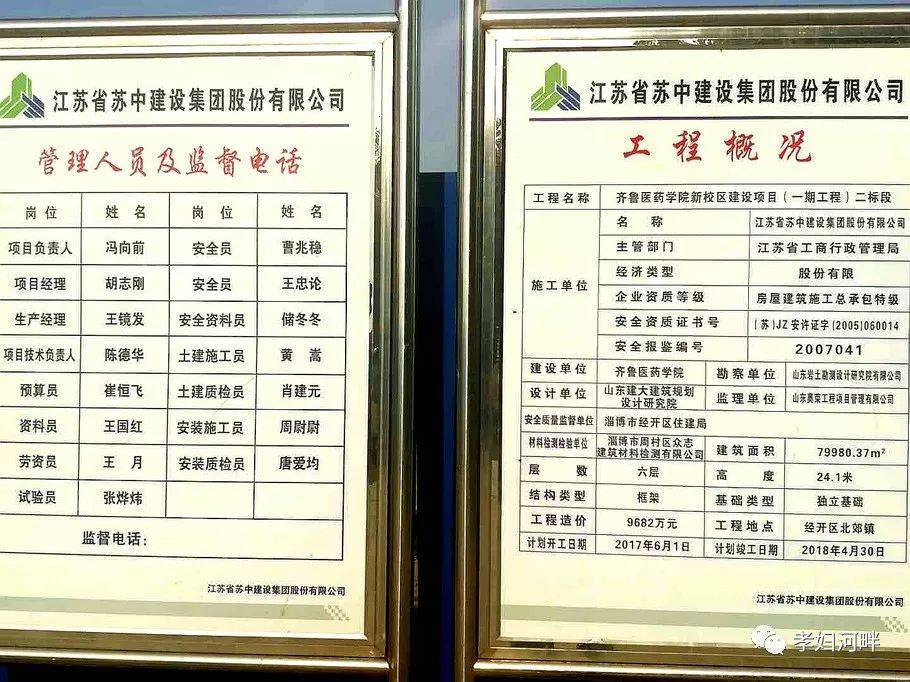 江苏省苏中建设集团股份有限公司
管理人员及监督电话
岗 位 姓 名 岗 位 姓 名
项目负责人 冯向前 安全员 曹兆稳
项目经理 胡志刚 安全员 王忠论
生产经理 王镜发 安全资料员 储冬冬
项目技术负责人 陈德华 土建施工员 黄 嵩
预算员 崔恒飞 土建质检员 肖建元
资料员 王国红 安装施工员 周尉尉
劳资员 王 月 安装质检员 唐爱均
试验员 张烨炜
监督电话:
江苏省苏中建设集团股份有限公司
江苏省苏中建设集团股份有限公司
工程概况
工程名称 齐鲁医药学院新校区建设项目(一期工程)二标段
施工单位
名 称 江苏省苏中建设集团股份有限公司
主管部门 江苏省工商行政管理局
经济类型 股份有限
企业资质等级 房屋建筑施工总承包特级
安全资质证书号 (苏)JZ安许证字(2005)060014
安全报鉴编号 2007041
建设单位 齐鲁医药学院 勘察单位 山东岩土勘测设计研究院有限公司
设计单位 山东建大建筑规划
设计研究院 监理单位 山东奥荣工程项目管理有限公司
安全质量监督单位 淄博市经开区住建局
材料检测检验单位 淄博市周村区众志
建筑材料检测有限公司 建筑面积 79980.37m²
层 数 六层 高 度 24.1米
结构类型 框架 基础类型 独立基础
工程造价 9682万元 工程地点 经开区北郊镇
计划开工日期 2017年6月1日 计划竣工日期 2018年4月30日
江苏省苏中建设集团股份有限公司
孝妇河畔